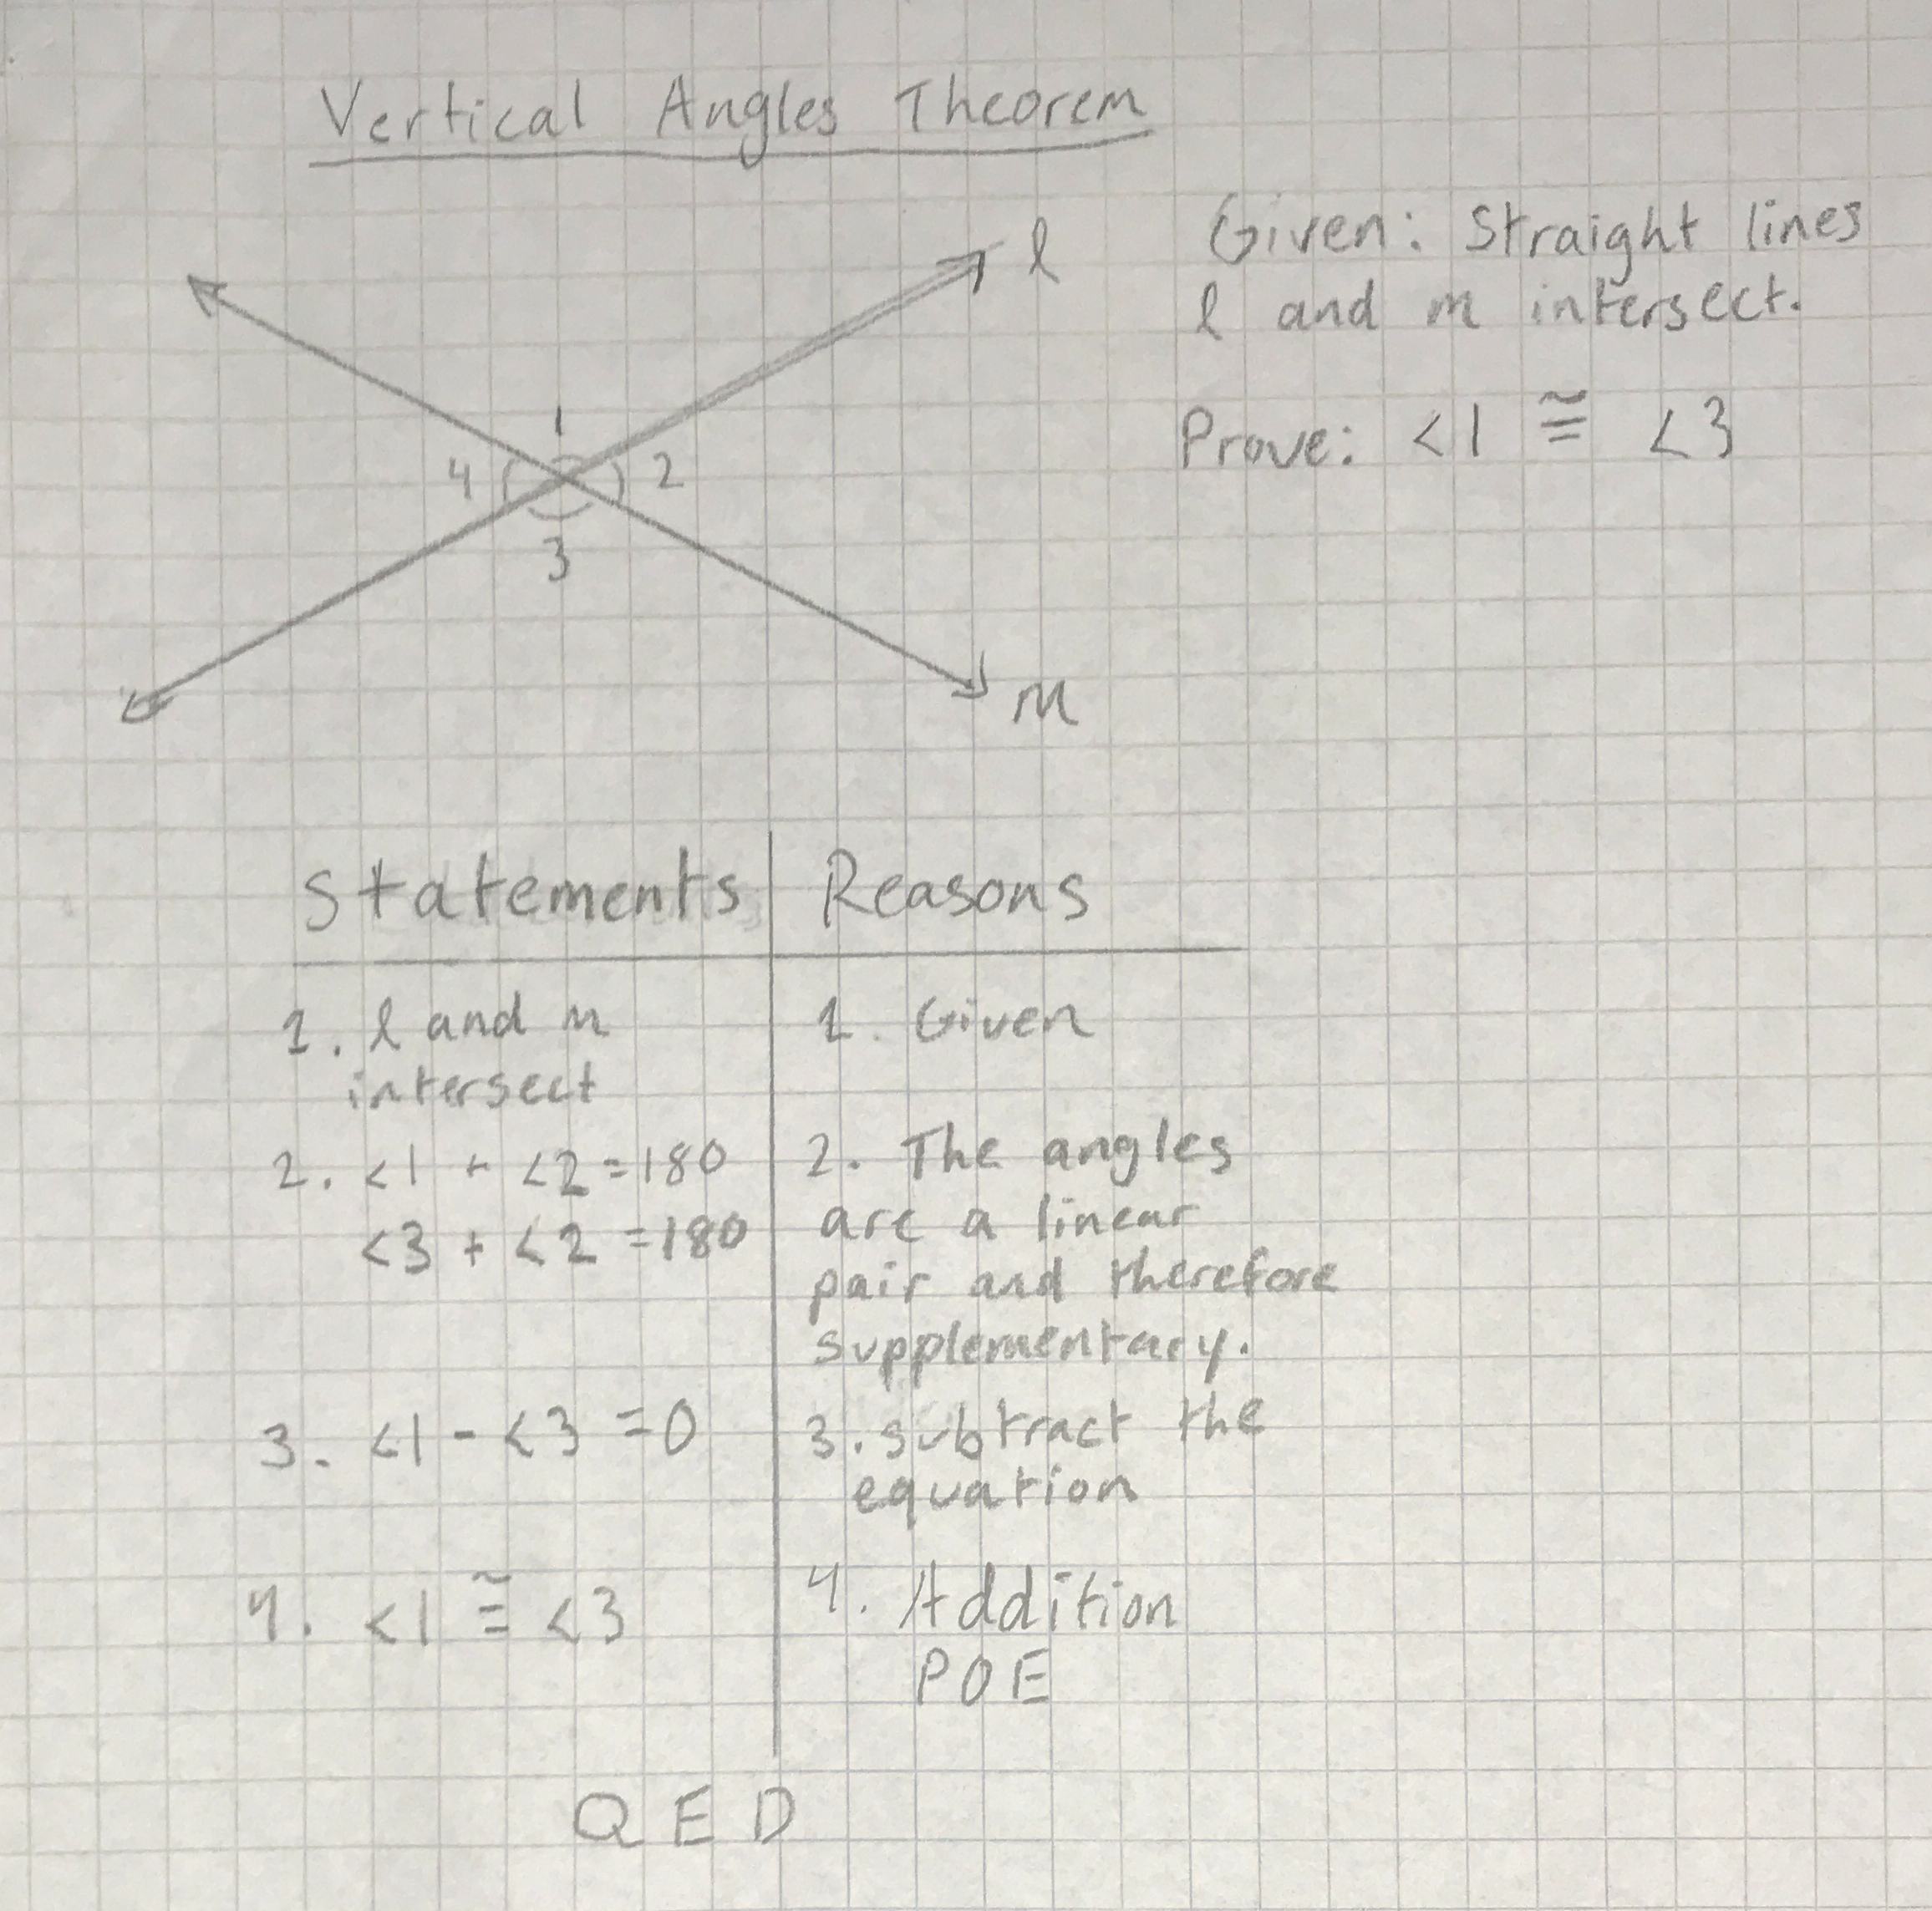 Vertical Angles Theorem
Given: Straight lines
l and m intersect.
Prove: <1 ≅ <3
l
1
4 2
3
m
Statements Reasons
1. l and m 1. Given
intersect
2. <1 + <2 = 180 2. The angles
<3 + <2 = 180 are a linear
pair and therefore
supplementary.
3. <1 - <3 = 0 3. subtract the
equation
4. <1 ≅ <3 4. Addition
POE
QED